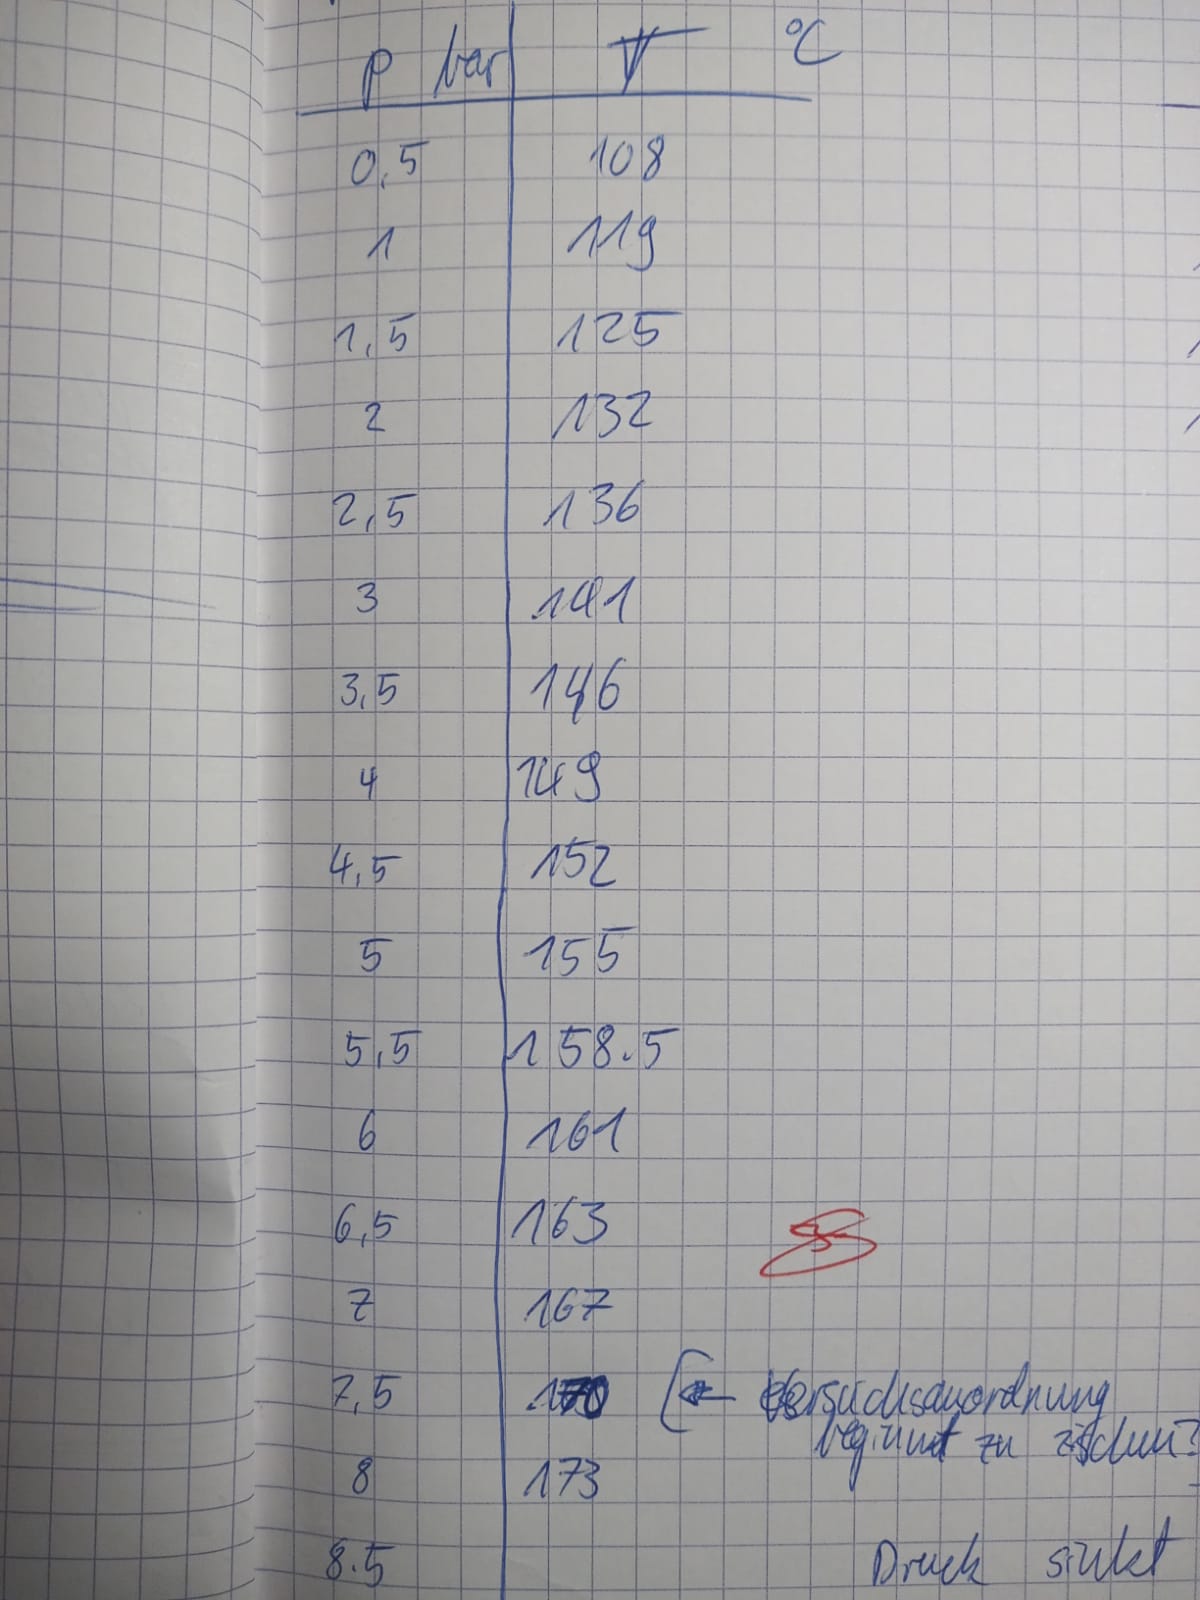 p bar T °C
0,5 108
1 119
1,5 125
2 132
2,5 136
3 141
3,5 146
4 149
4,5 152
5 155
5,5 158.5
6 161
6,5 163
7 167
7,5 170 ← Versuchsanordnung
beginnt zu zischen?
8 173
8.5 Druck sinkt